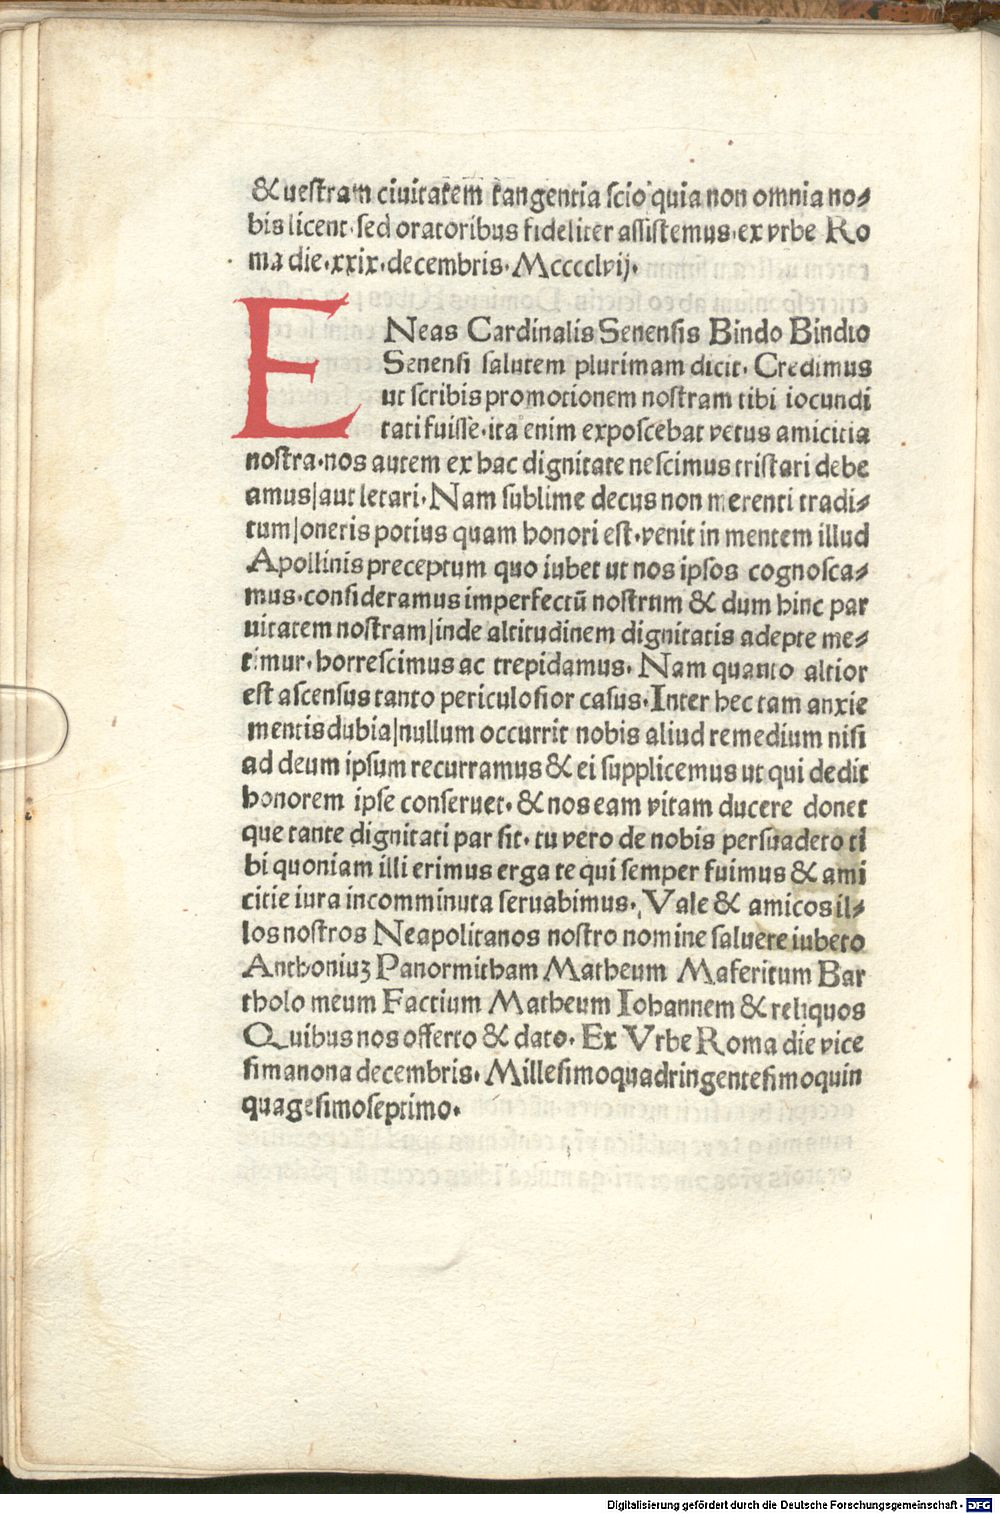 & uestram ciuitatem tangentia scio quia non omnia no⸗
bis licent· sed oratoribus fideliter assistemus· ex vrbe Ro
ma die·xxix·decembris· Mccccclvij·
E Neas Cardinalis Senensis Bindo Bindio
Senensi salutem plurimam dicit· Credimus
ut scribis promotionem nostram tibi iocundi
tati fuisse· ita enim exposcebat vetus amicitia
nostra· nos autem ex hac dignitate nescimus tristari debe
amus|aut letari· Nam sublime decus non merenti tradi⸗
tum|oneris potius quam honori est· venit in mentem illud
Apollinis preceptum quo iubet ut nos ipsos cognosca⸗
mus· consideramus imperfectū nostrum & dum hinc par
uitatem nostram|inde altitudinem dignitatis adepte me⸗
timur· horrescimus ac trepidamus· Nam quanto altior
est ascensus tanto periculosior casus· Inter hec tam anxie
mentis dubia|nullum occurrit nobis aliud remedium nisi
ad deum ipsum recurramus & ei supplicemus ut qui dedit
honorem ipse conseruet· & nos eam vitam ducere donet
que tante dignitati par sit· tu vero de nobis persuadeto ti
bi quoniam illi erimus erga te qui semper fuimus & ami
citie iura incomminuta seruabimus· Vale & amicos il⸗
los nostros Neapolitanos nostro nomine saluere iubeto
Anthoniuʒ Panormitham Matheum Maferitum Bar
tholomeum Factium Matheum Iohannem & reliquos
Quibus nos offerto & dato· Ex Vrbe Roma die vice
simanona decembris· Millesimoquadringentesimoquin
quagesimoseptimo·
Digitalisierung gefördert durch die Deutsche Forschungsgemeinschaft - DFG